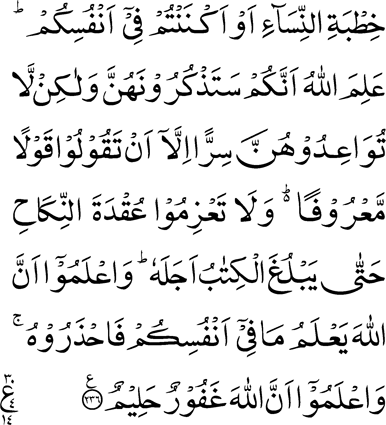 خِطْبَةِ النِّسَآءِ اَوْ اَكْنَنْتُمْ فِیْۤ اَنْفُسِكُمْ ؕ
عَلِمَ اللّٰهُ اَنَّكُمْ سَتَذْكُرُوْنَهُنَّ وَلٰكِنْ لَّا
تُوَاعِدُوْهُنَّ سِرًّا اِلَّاۤ اَنْ تَقُوْلُوْا قَوْلًا
مَّعْرُوْفًا ؕ۬ وَلَا تَعْزِمُوْا عُقْدَةَ النِّكَاحِ
حَتّٰی یَبْلُغَ الْكِتٰبُ اَجَلَهٗ ؕ وَاعْلَمُوْۤا اَنَّ
اللّٰهَ یَعْلَمُ مَا فِیْۤ اَنْفُسِكُمْ فَاحْذَرُوْهُ ۚ
وَاعْلَمُوْۤا اَنَّ اللّٰهَ غَفُوْرٌ حَلِیْمٌ ع ۝۲۳۶ ۳ ع ۴ ۱۴